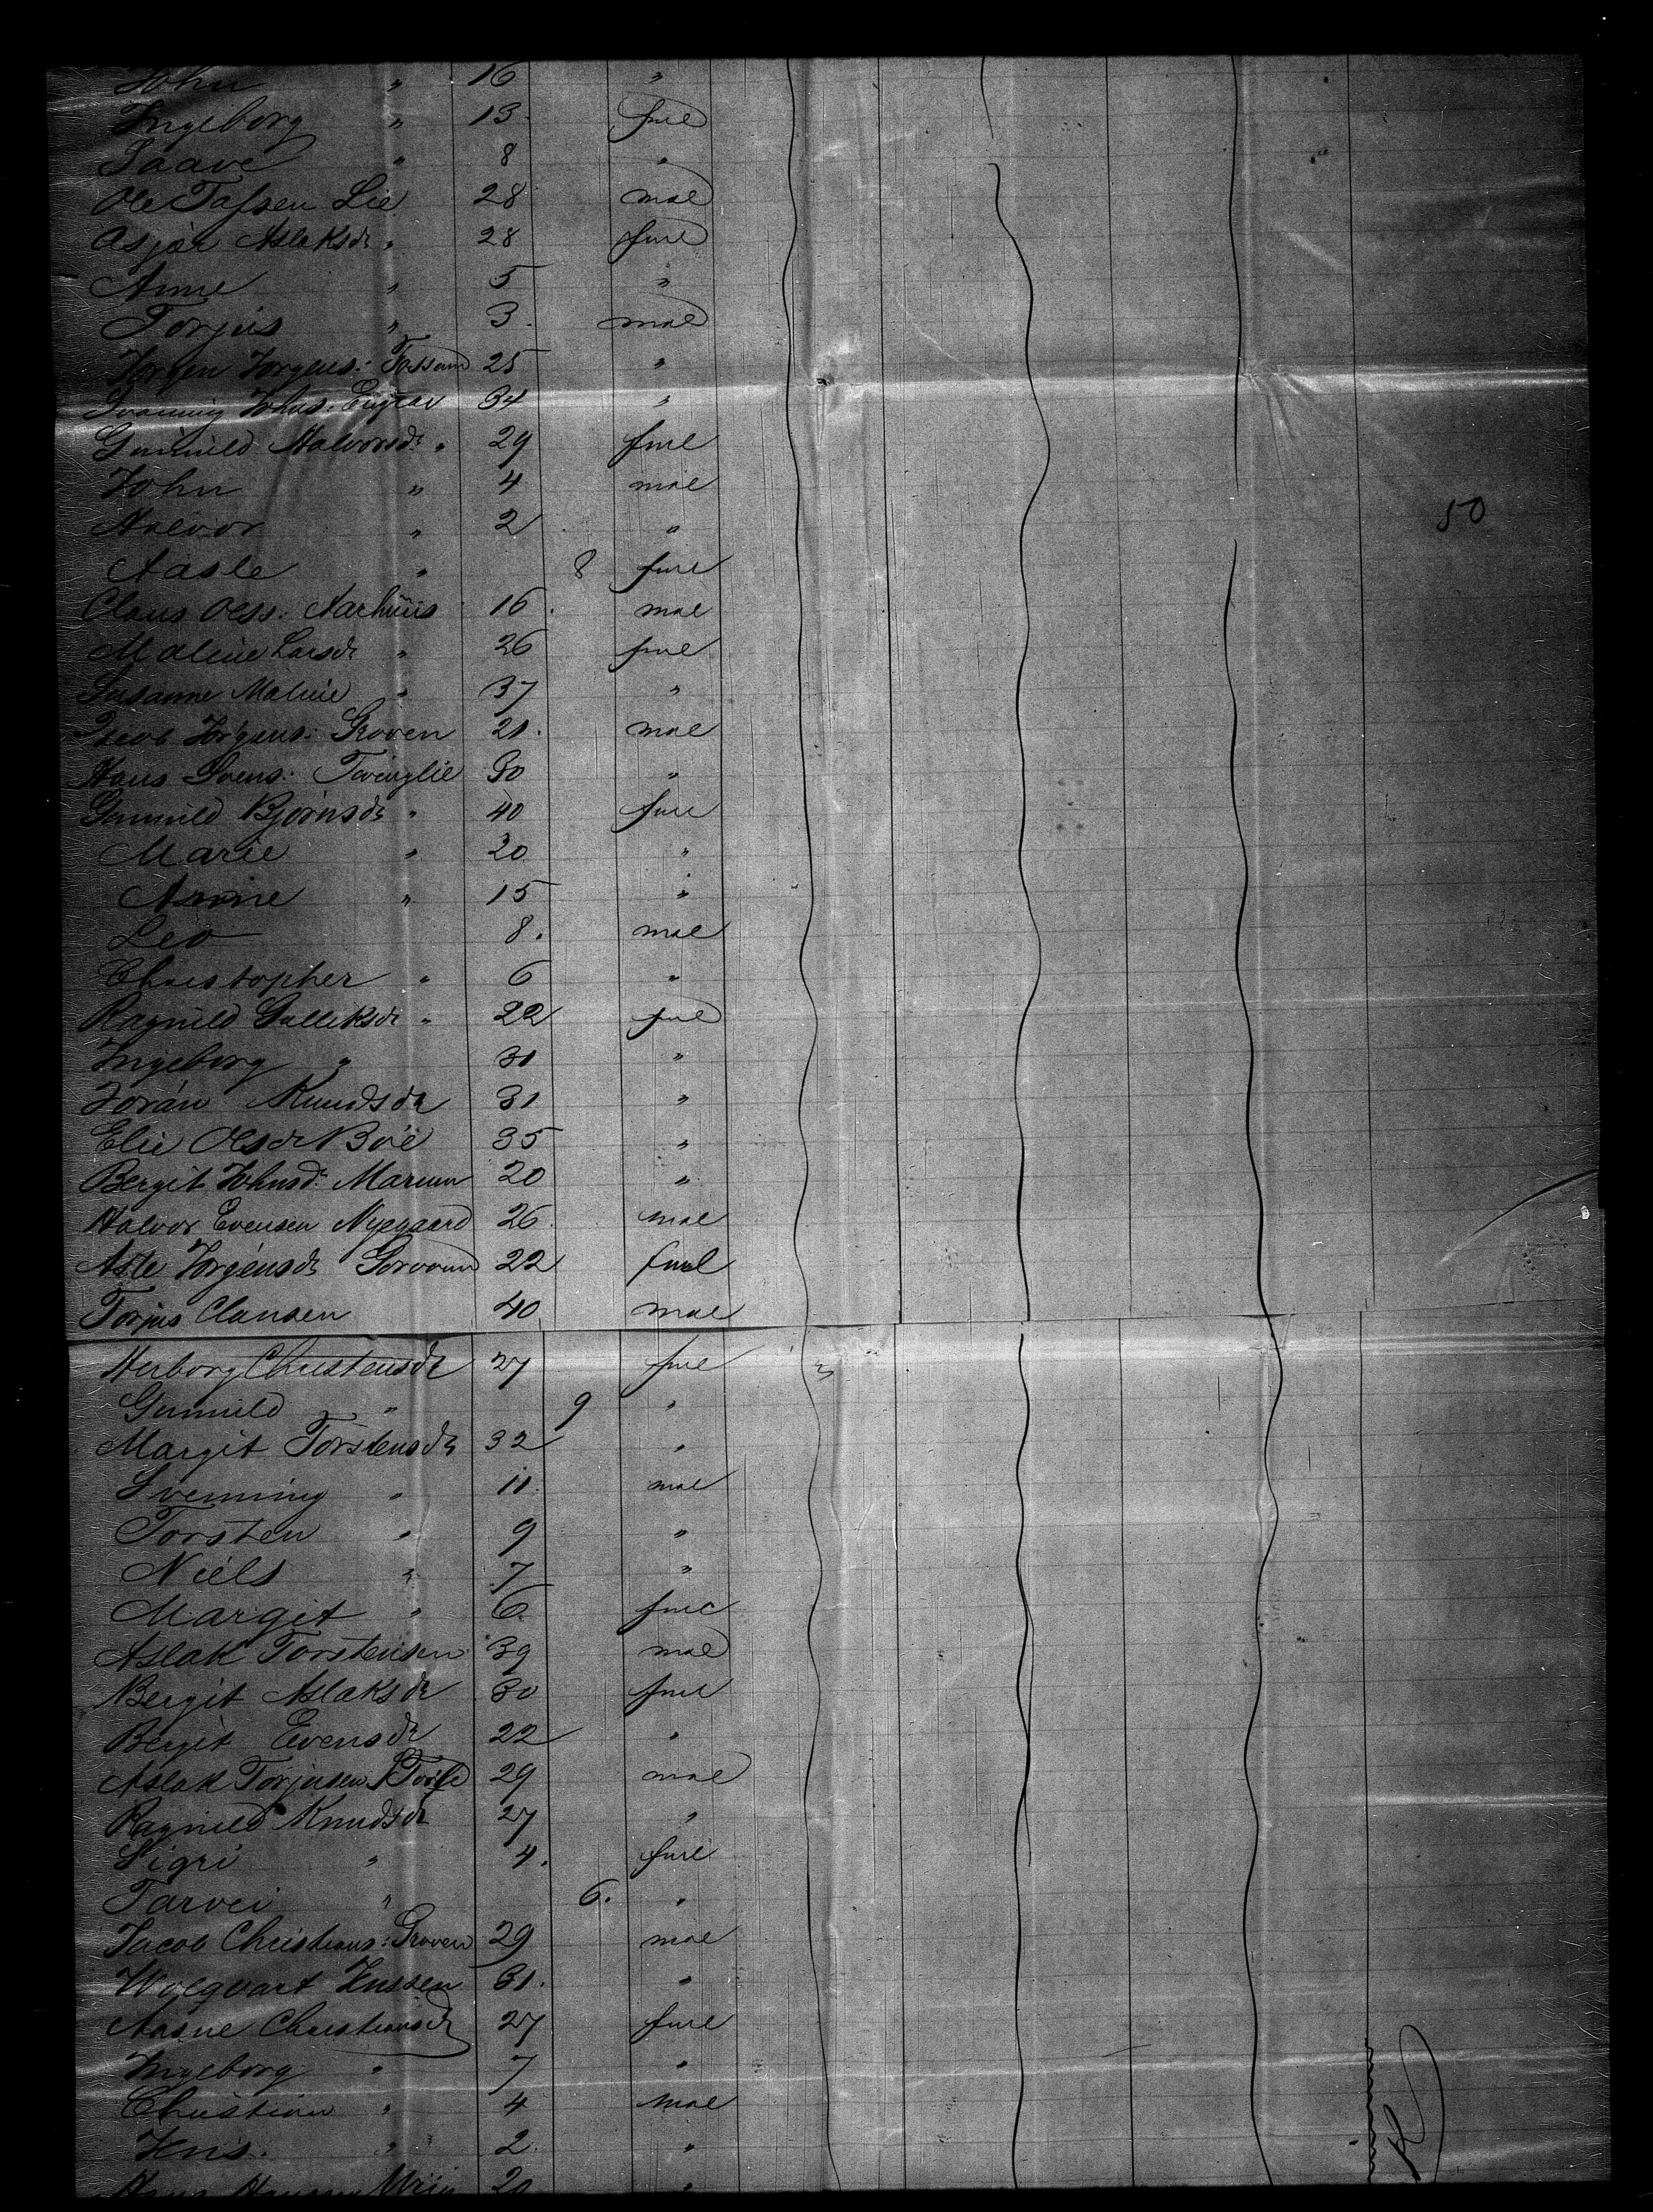 John " 16 "
Ingeborg " 13. fml
Taave " 8 "
Ole Tassen Lie 28 mal
Asjær Aslaksdr " 28 fml
Anne " 5 "
Torjus " 3. mal
Jorgen Jorgens: Fossum 25 "
Johns: 34 "
Gunnild Halvorsdr " 29 fml
John " 4 mal
Halvor " 2 "
Aasle " 8 fml
Claus Oles: Aarhuus 16. mal
Maline Larsdr " 26 fml
Susanne Maline " 37 "
Jacob Jorgens: Groven 21. mal
Hans Svens: 30 "
Gunnild Bjornsdr " 40 fml
Marie " 20 "
Anne " 15 "
Leo 8. mal
Christopher " 6 "
Ragnild Gulleksdr " 22 fml
Ingeborg " 31 "
Joran Knudsdr 31 "
Elie Olsdr Böe 35 "
Bergit Johnsdr: Marum 20 "
Halvor Evensen Nygaard 26. mal
Asle Jorgensdr 22 fml
Torjus Clausen 40 mal
Herborg Christensdr 27 fml
Gunnild " 9 "
Margit Torstensdr 32 "
Svenning " 11. mal
Torsten " 9 "
Niels " 7 "
Margit " 6. fml
Aslak Torstensen 39 mal
Bergit Aslaksdr 30 fml
Bergit Evensdr 22 "
Aslak Torjusen 29 mal
Ragnild Knudsdr 27 "
Sigri " 4. fml
Tarvei " 6. "
Jacob Christians: Groven 29 mal
Wolqvart Jenssen 31. "
Aasne Christiansdr 27 fml
Ingeborg " 7 "
Christian " 4 mal
Jens. " 2. "
Hans Hansen 20 "
50